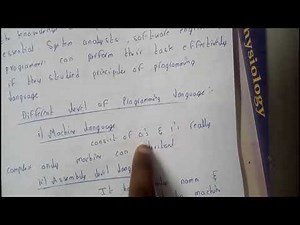 to knowledge
essential System analysts, software eng
programmer can perform their task effectively
if they studied principles of programming
language
Different level of Programming language:-
i) Machine language
consist of 0's & 1's really
complex only machine can
ii) Assembly level lang
It name &
machine
Physiology